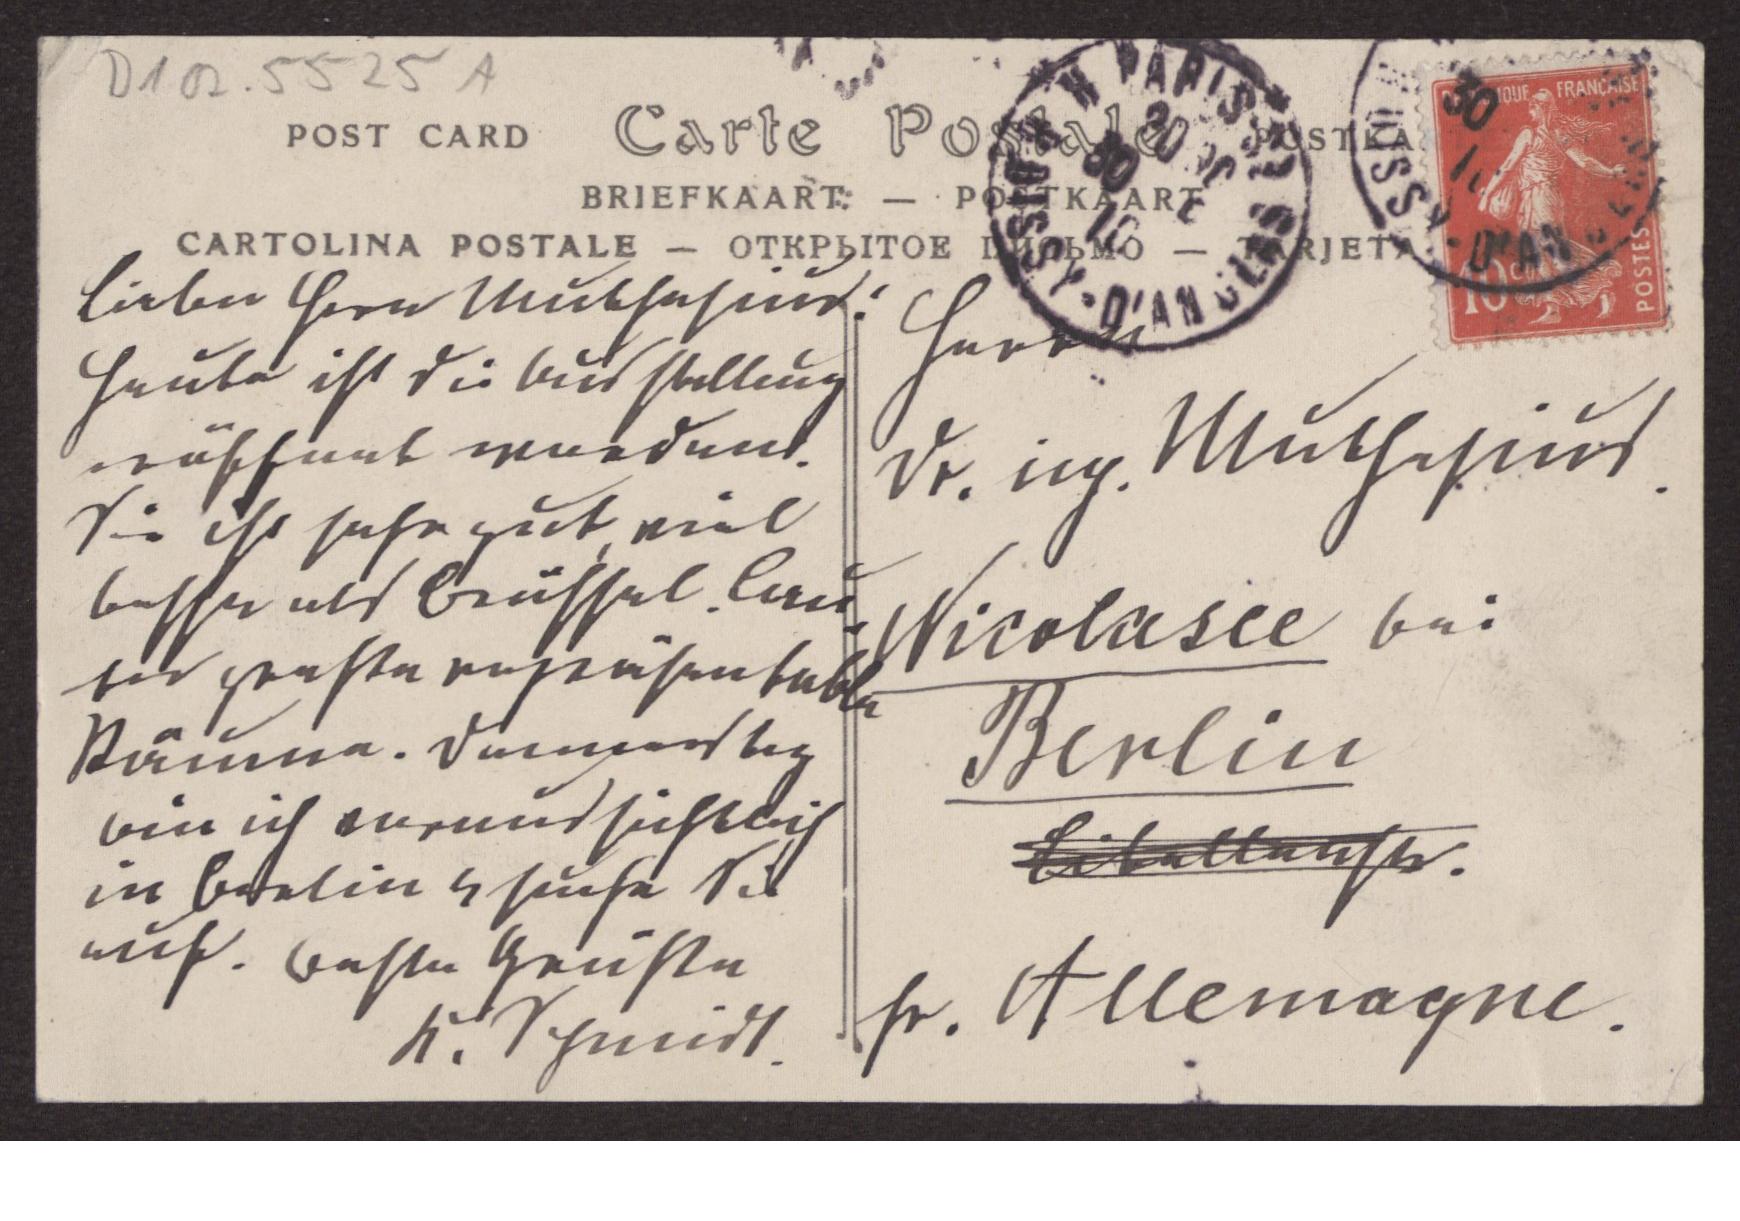 D102.5525 A
POST CARD Carte Postale POSTKA
BRIEFKAART — POSTKAART
CARTOLINA POSTALE — ОТКРЫТОЕ ПИСЬМО — TARJETA
Lieber Herr Muthesius!
Heute ist die Ausstellung
eröffnet worden.
Sie ist sehr gut, viel
besser als Brüssel. Lau-
ter große repräsentable
Räume. Donnerstag
bin ich voraussichtlich
in Berlin u suche Sie
auf. Beste Grüße
K. Schmidt.
Herrn
Dr. ing. Muthesius.
Nicolasee bei
Berlin
str.
Allemagne.
PARIS
30
D'AN
30
D'AN
FRANÇAISE
10c
POSTES